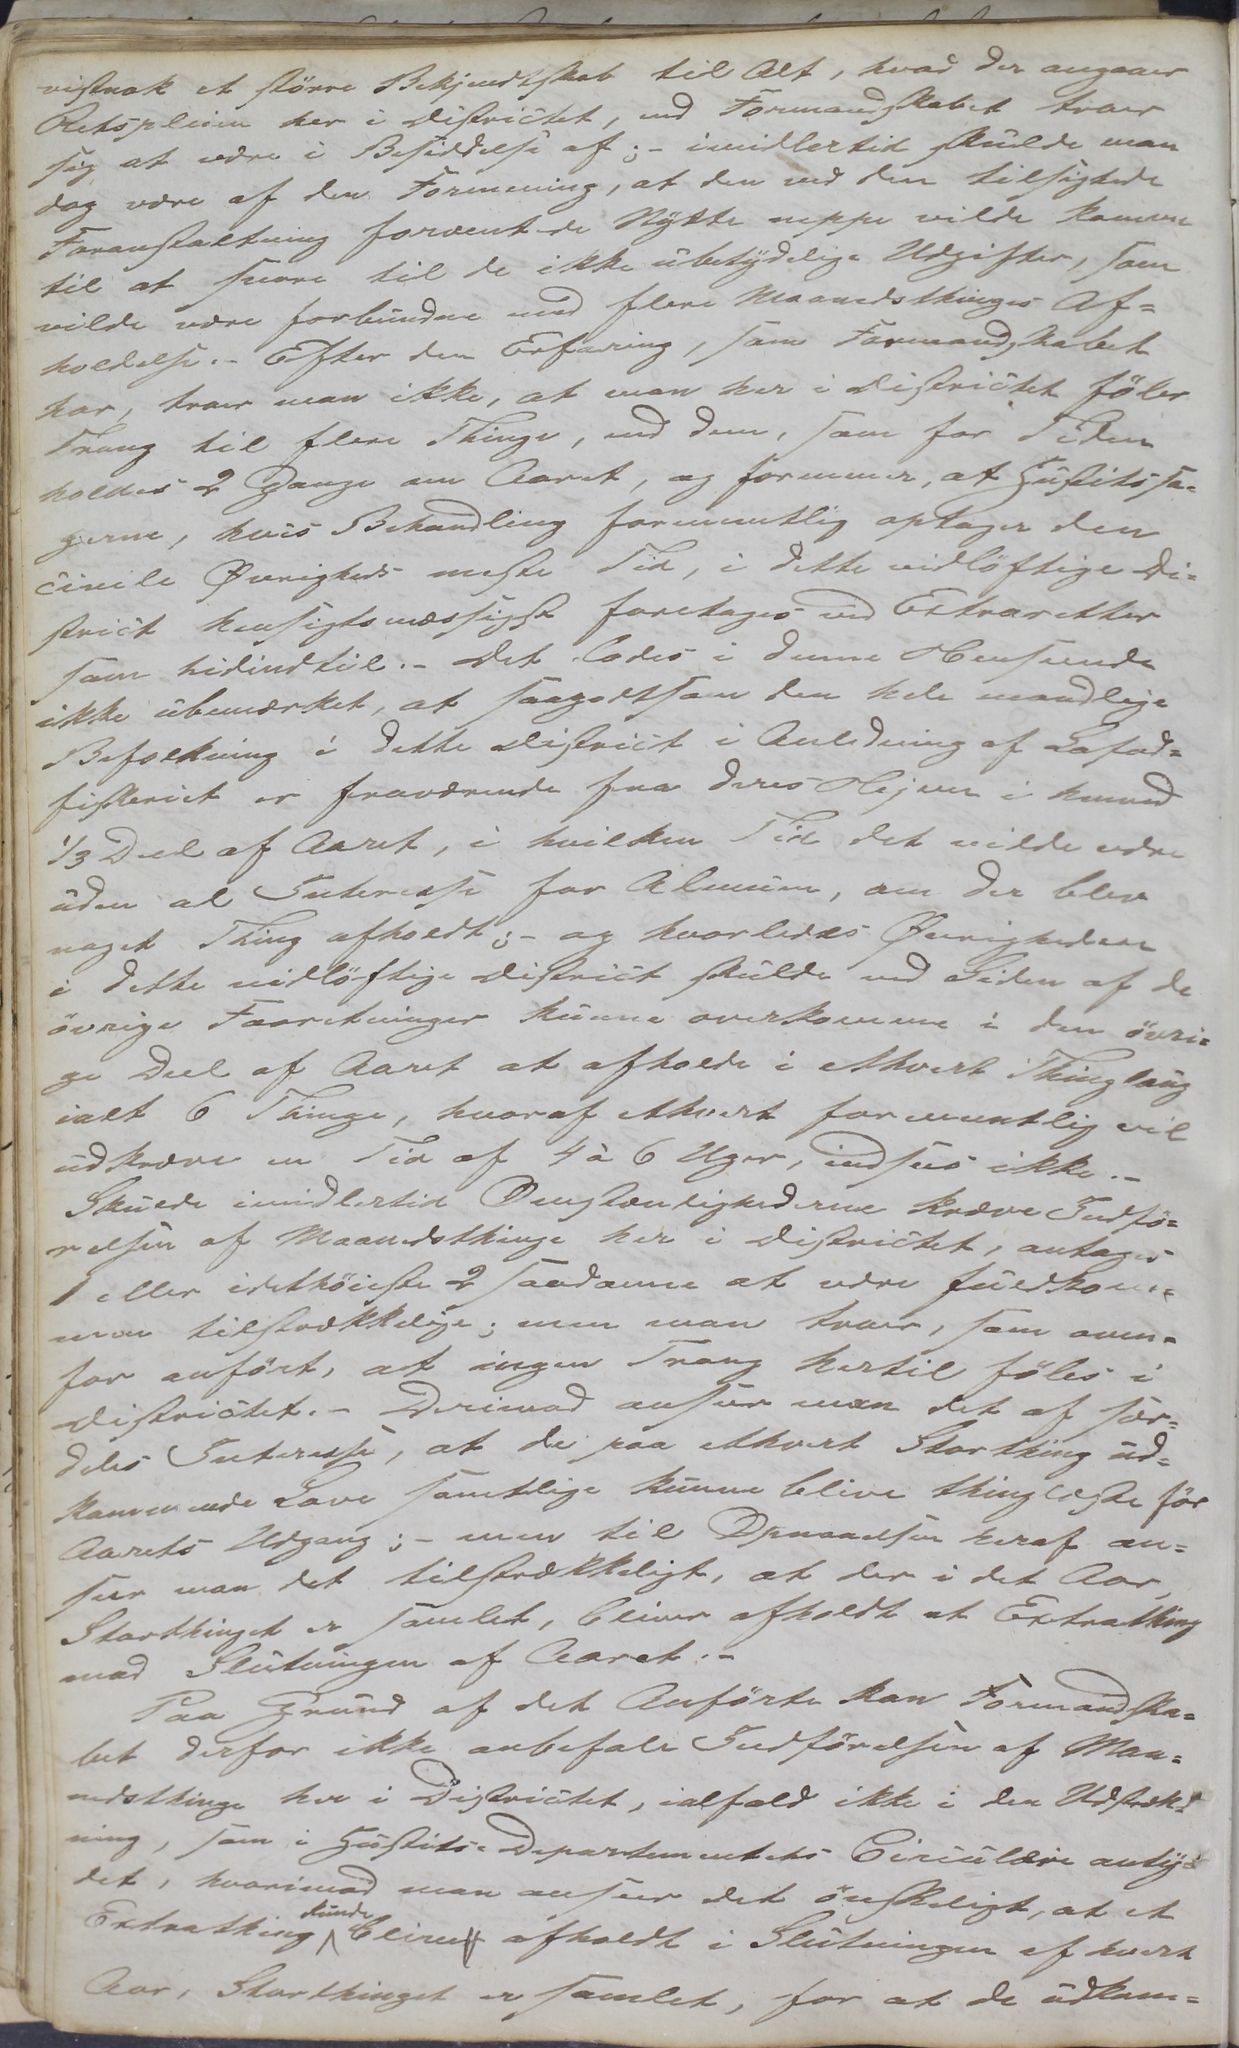 vistnok et större Bekjendtskab til Alt, hvad der angaaer
Retspleien her i Districtet, end Formandskabet troer
sig at være i Besiddelse af; - imidlertid skulde man
dog være af den Formening, at den ved den tilsigtede
Foranstaltning forventede Nytte neppe vilde komme
til at svare til de ikke ubetydelige Udgifter, som
vilde være forbundne med flere Maanedsthinges Af=
holdelse. - Efter den Erfaring, som Formandskabet
har, troer man ikke, at man her i Districtet föler
Trang til flere Thinge, end dem, som for Tiden
holdes 2 Gange om Aaret, og formener, at Justitssa=
gerne, hvis Behandling formentlig optager den
civile Øvrigheds meste Tid, i dette vidlöftige Di=
strict hensigtsmæssigst foretages ved Extraretter
som hidindtil. - Det lades i denne Henseende
ikke ubemærket, at saagodtsom den hele mandlige
Befolkning i dette District i Anledning af Lofod=
fiskeriet er fraværende fra deres Hjem i henved
1/3 Deel af Aaret, i hvilken Tid det vilde være
uden al Interesse for Almuen, om der blev
noget Thing afholdt; - og hvorledes Øvrigheden
i dette vidlöftige District skulde ved Siden af de
övrige Forretninger kunne overkomme i den övri=
ge Deel af Aaret at afholde i ethvert Thinglaug
ialt 6 Thinge, hvoraf ethvert formentlig vil
udkræve en Tid af 4 à 6 Uger, indsees ikke. -
Skulde imidlertid Omstændighederne kræve Indfö=
relsen af Maanedsthinge her i Districtet, antages
1 eller idethöieste 2 saadanne at være fuldkom=
men tilstrækkelige; men man troer, som oven=
for anfört, at ingen Trang hertil föles i
Districtet. - Derimod anseer man det af sær=
deles Interesse, at de paa ethvert Storthing ud=
kommende Love samtlige kunne blive thinglæste för
Aarets Udgang; - men til Opnaaelsen heraf an=
seer man det tilstrækkeligt, at der i det Aar,
Storthinget er samlet, bliver afholdt et Extrathing
mod Slutningen af Aaret. -
Paa Grund af det Anförte kan Formandska=
bet derfor ikke anbefale Indförelsen af Maa=
nedsthinge her i Districtet, ialfald ikke i den Udstræk=
ning, som i Justits=Departementets Circulære anty=
det, hvorimod man anseer det önskeligt, at et
Extrathing kunde blive afholdt i Slutningen af hvert
Aar, Storthinget er samlet, for at de udkom=